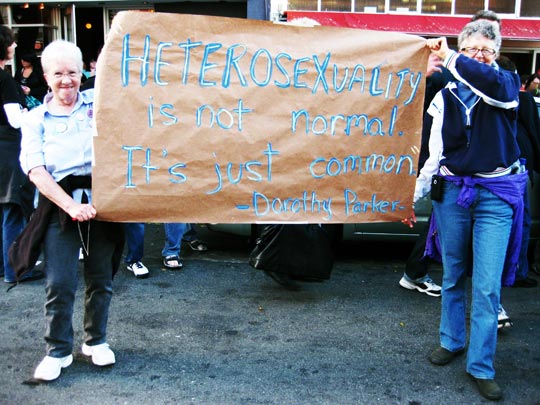 HETEROSEXUALITY
is not normal.
It's just common.
-Dorothy Parker-